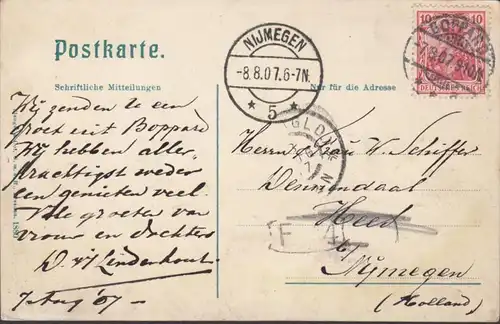 Postkarte.
Schriftliche Mitteilungen
Nur für die Adresse
NIJMEGEN
-8.8.07.6-7N.
* 5 *
10 10
DEUTSCHES REICH
BOPPARD
Wij zenden u een
groet uit Boppard
Wij hebben aller-
prachtigst weder
en genieten veel.
Vele groeten van
vrouw en dochters
Lindenhout
7 Aug 07
Herrn & Frau W. Schiffer
Dennendaal
Heed
b/
Nijmegen
(Holland)